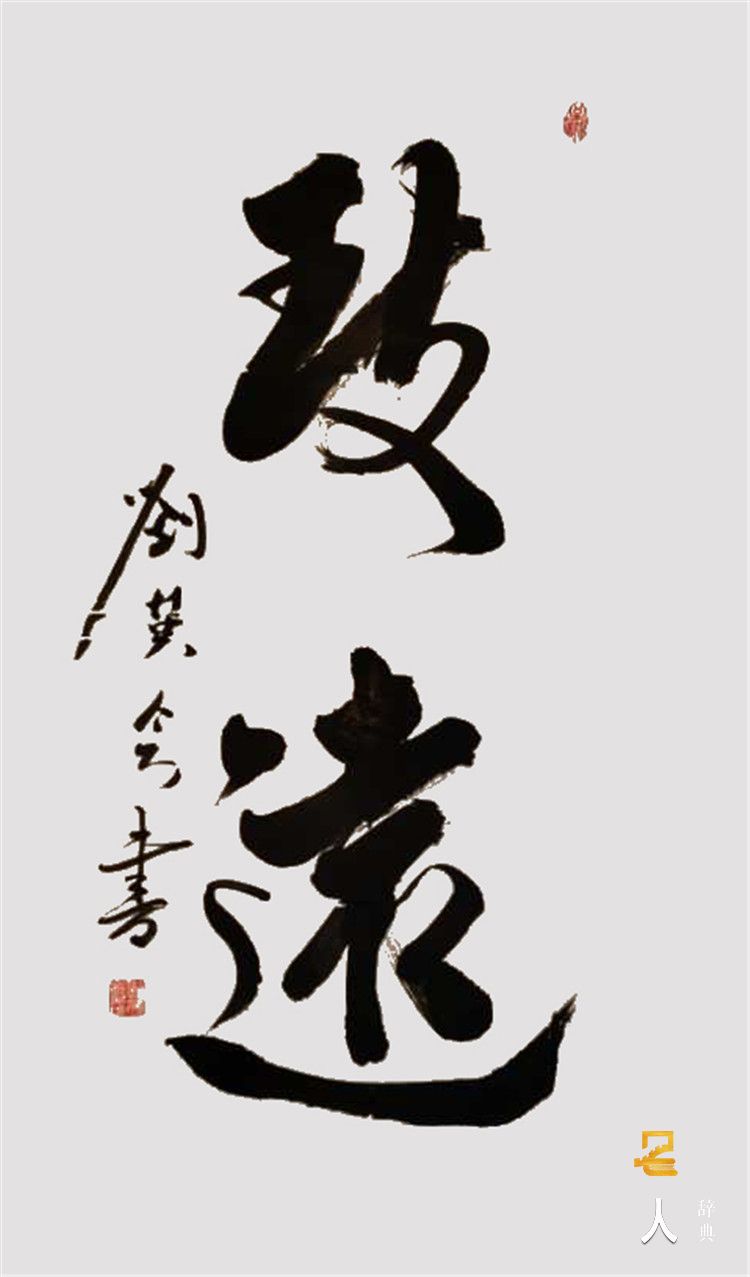 致遠
劉英會書
名人
辞典